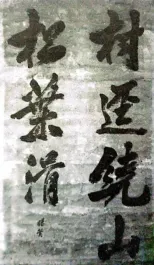 村迳繞山
松葉滑